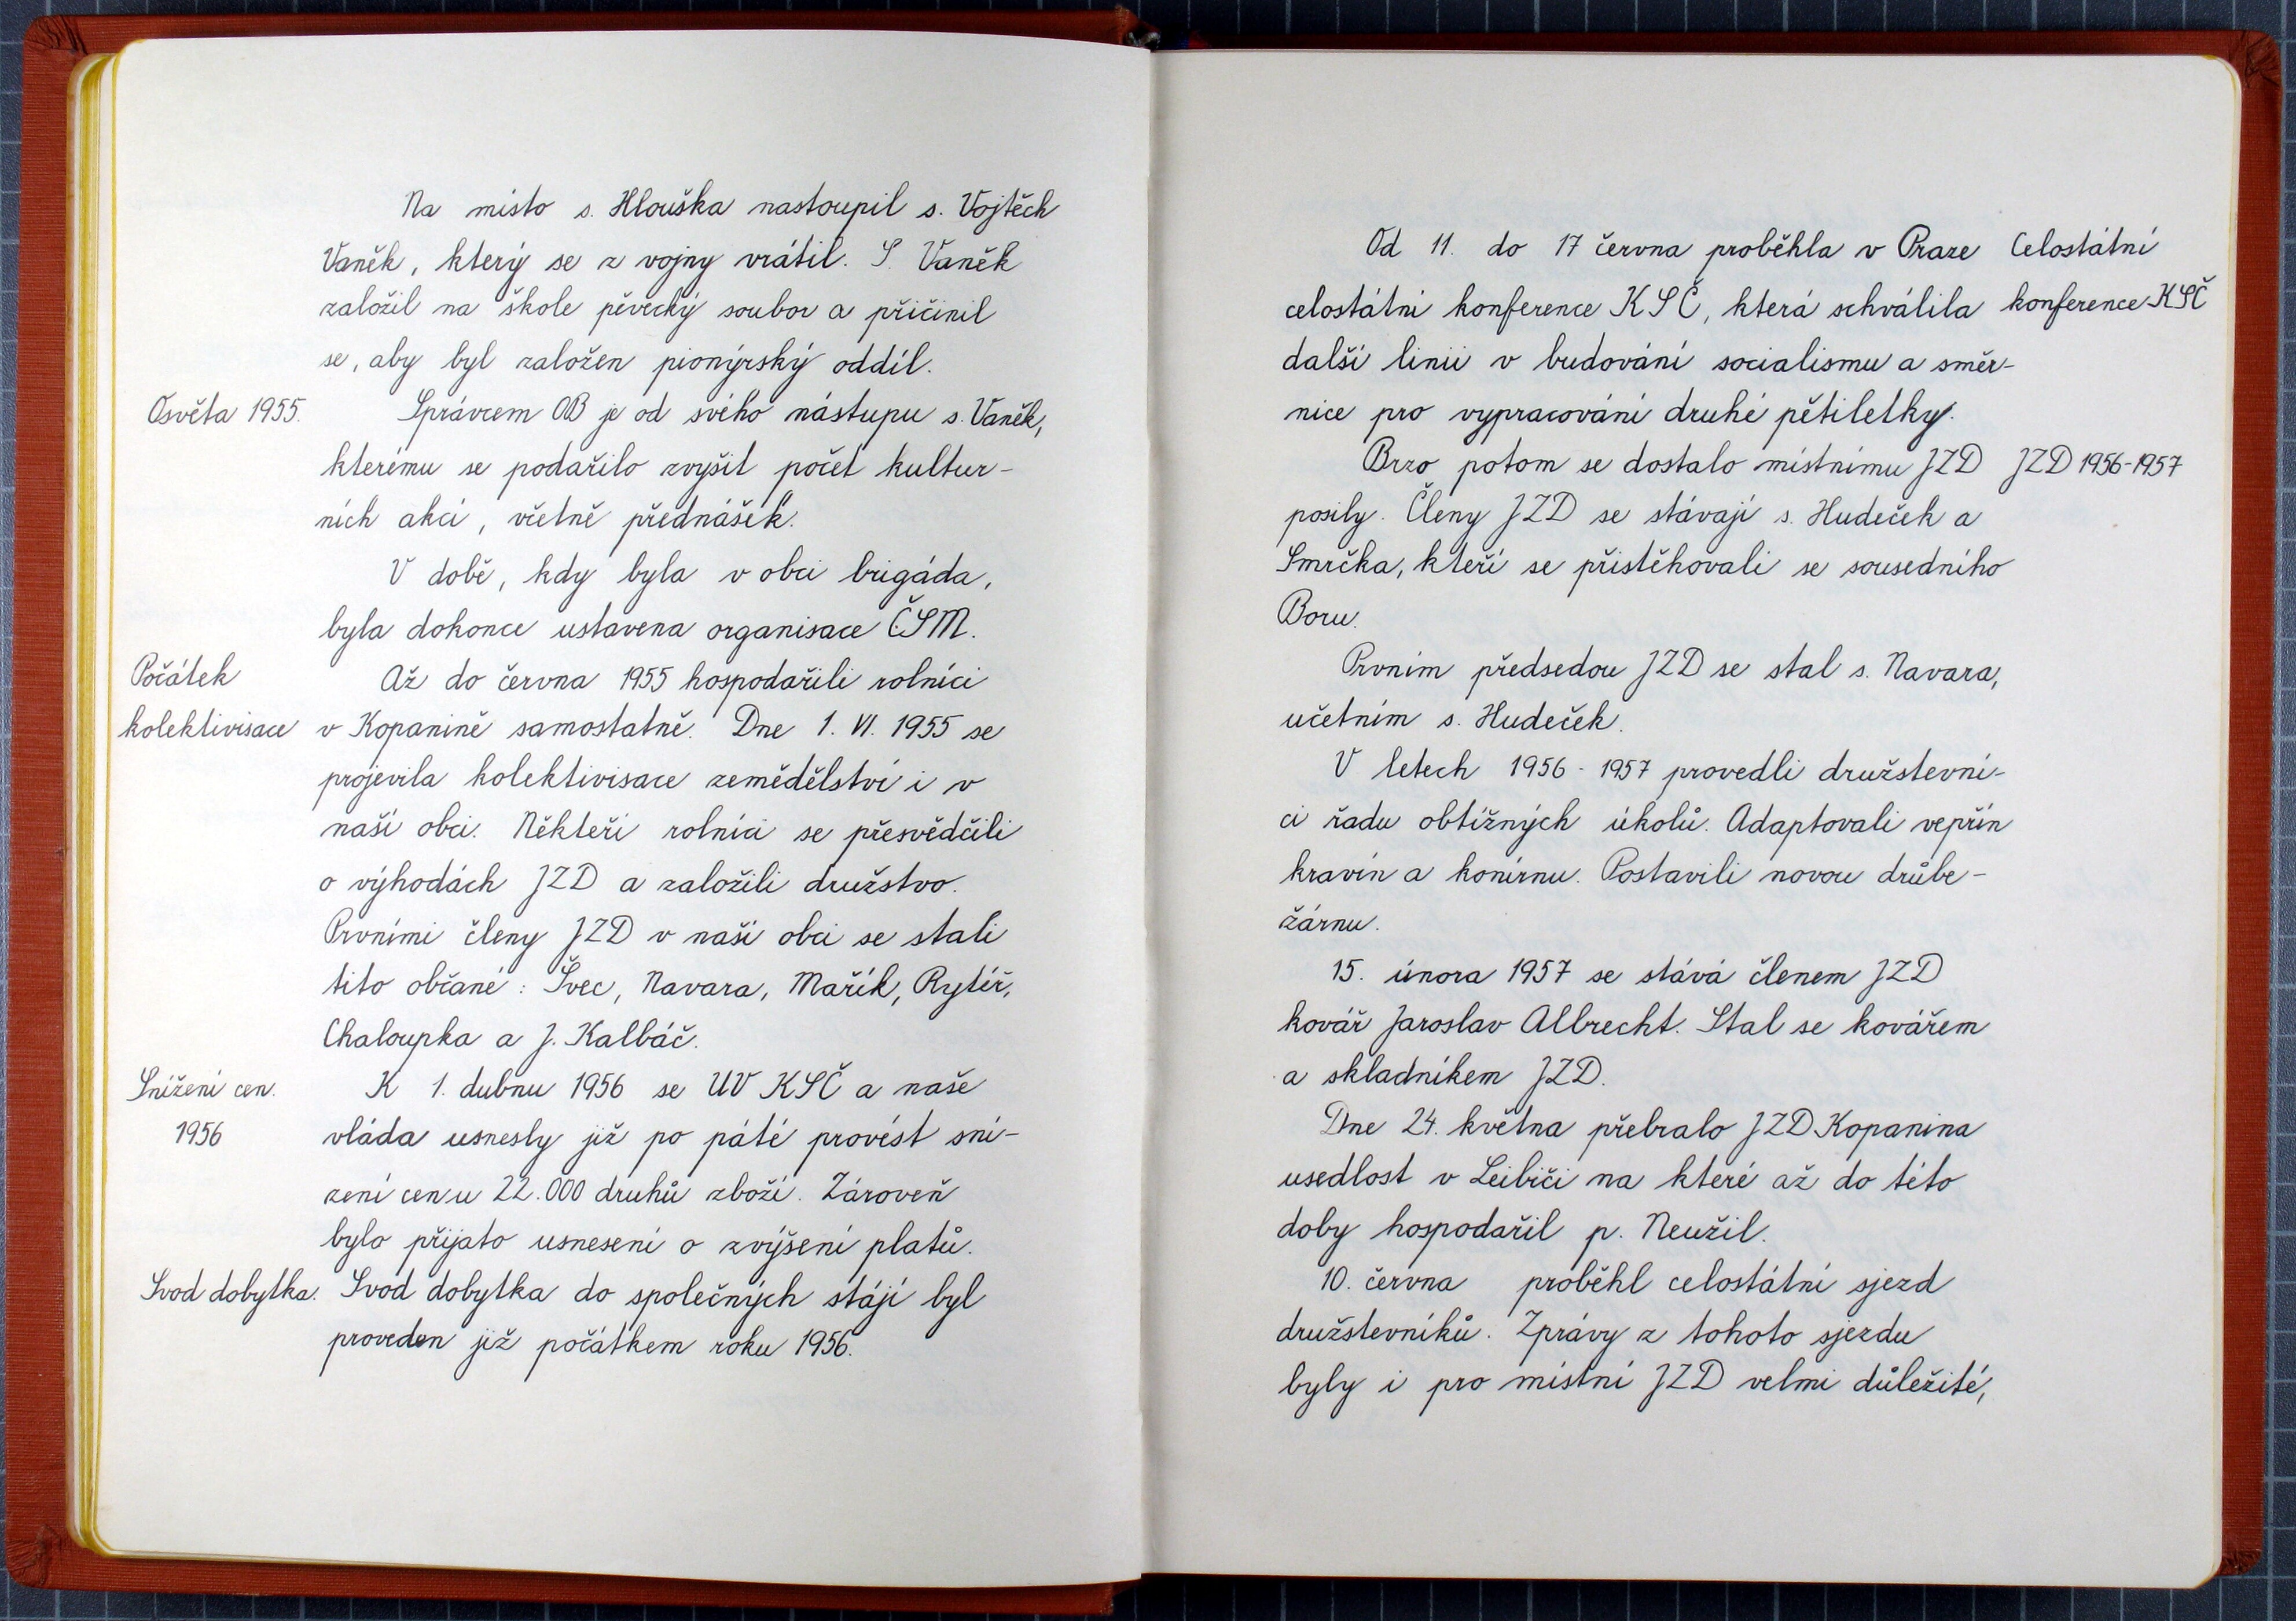 Na místo s. Hlouška nastoupil s. Vojtěch
Vaněk, který se z vojny vrátil. S. Vaněk
založil na škole pěvecký soubor a přičinil
se, aby byl založen pionýrský oddíl.
Osvěta 1955.
Správcem OB je od svého nástupu s. Vaněk,
kterému se podařilo zvýšit počet kultur-
ních akcí, včetně přednášek.
V době, kdy byla v obci brigáda,
byla dokonce ustavena organisace ČSM.
Počátek
kolektivisace
Až do června 1955 hospodařili rolníci
v Kopanině samostatně. Dne 1. VI. 1955 se
projevila kolektivisace zemědělství i v
naší obci. Někteří rolníci se přesvědčili
o výhodách JZD a založili družstvo.
Prvními členy JZD v naší obci se stali
tito občané: Švec, Navara, Mařík, Rytíř,
Chaloupka a J. Kalbáč.
Snížení cen.
1956
K 1. dubnu 1956 se UV KSČ a naše
vláda usnesly již po páté provést sní-
zení cen u 22.000 druhů zboží. Zároveň
bylo přijato usnesení o zvýšení platů.
Svod dobytka.
Svod dobytka do společných stájí byl
proveden již počátkem roku 1956.
Od 11. do 17 června proběhla v Praze
celostátní konference KSČ, která schválila
další linii v budování socialismu a směr-
nice pro vypracování druhé pětiletky.
Celostátní
konference KSČ
Brzo potom se dostalo místnímu JZD
posily. Členy JZD se stávají s. Hudeček a
Smrčka, kteří se přistěhovali se sousedního
Boru.
JZD 1956-1957
Prvním předsedou JZD se stal s. Navara,
učetním s. Hudeček.
V letech 1956 - 1957 provedli družstevní-
ci řadu obtížných úkolů. Adaptovali vepřín
kravín a konírnu. Postavili novou drůbe-
žárnu.
15. února 1957 se stává členem JZD
kovář Jaroslav Albrecht. Stal se kovářem
a skladníkem JZD.
Dne 24. května přebralo JZD Kopanina
usedlost v Leibiči na které až do této
doby hospodařil p. Neužil.
10. června proběhl celostátní sjezd
družstevníků. Zprávy z tohoto sjezdu
byly i pro místní JZD velmi důležité,